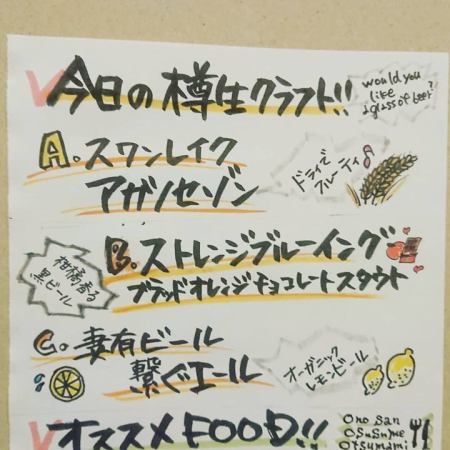 今日の樽生クラフト!!
would you
like
a glass of beer?
A. スワンレイク
アガノセゾン
ドライで
フルーティ♪
B. ストレンジブルーイング
ブラッドオレンジチョコレートスタウト
柑橘香る
黒ビール
C. 妻有ビール
繋ぐエール
オーガニック
レモンビール
オススメFOOD!!
Ono san
OSuSume
Otsumami